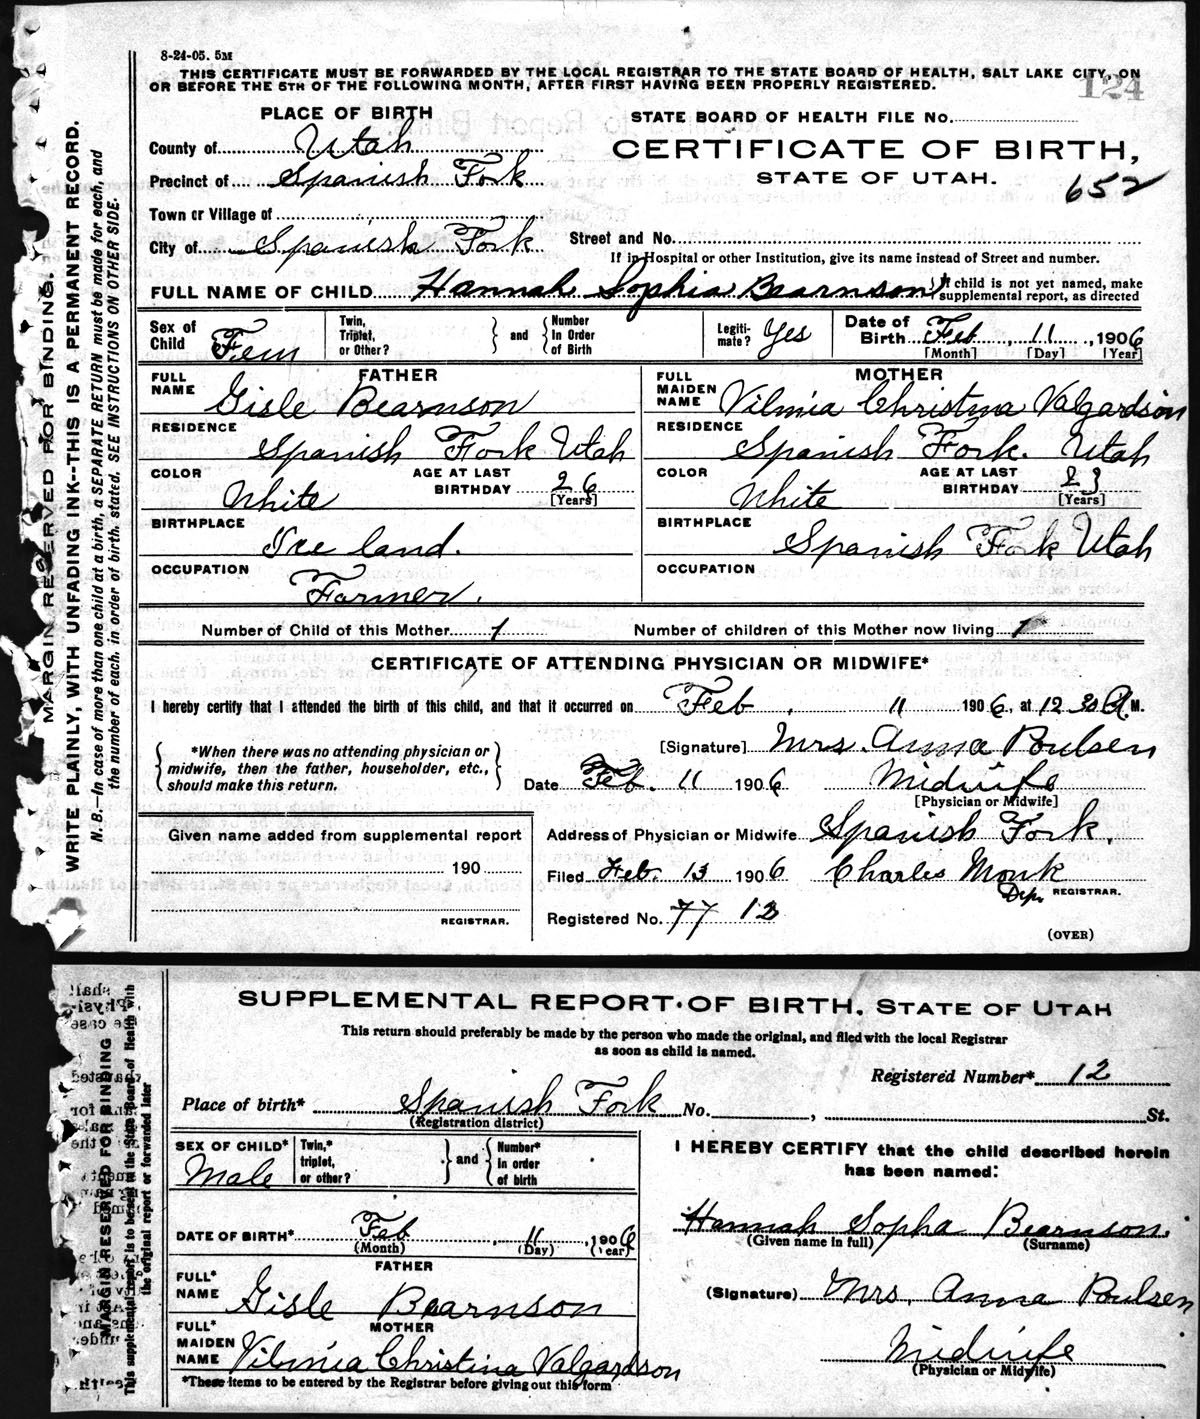 8-24-05. 5M
THIS CERTIFICATE MUST BE FORWARDED BY THE LOCAL REGISTRAR TO THE STATE BOARD OF HEALTH, SALT LAKE CITY, ON
OR BEFORE THE 5TH OF THE FOLLOWING MONTH, AFTER FIRST HAVING BEEN PROPERLY REGISTERED.
124
PLACE OF BIRTH
STATE BOARD OF HEALTH FILE No.
County of Utah
CERTIFICATE OF BIRTH,
Precinct of Spanish Fork
STATE OF UTAH.
652
Town or Village of
City of Spanish Fork
Street and No.
If in Hospital or other Institution, give its name instead of Street and number.
FULL NAME OF CHILD Hannah Sophia Bearnson
If child is not yet named, make
supplemental report, as directed
Sex of Child Fem
Twin, Triplet, or Other?
and
Number In Order of Birth
Legiti- mate? Yes
Date of Birth Feb 11, 1906
[Month] [Day] [Year]
FATHER
MOTHER
FULL NAME Gisle Bearnson
FULL MAIDEN NAME Vilmia Christina Valgardson
RESIDENCE Spanish Fork Utah
RESIDENCE Spanish Fork. Utah
COLOR White
AGE AT LAST BIRTHDAY 26 [Years]
COLOR White
AGE AT LAST BIRTHDAY 23 [Years]
BIRTHPLACE Iceland.
BIRTHPLACE Spanish Fork Utah
OCCUPATION Farmer.
OCCUPATION
Number of Child of this Mother 1
Number of children of this Mother now living 1
CERTIFICATE OF ATTENDING PHYSICIAN OR MIDWIFE*
I hereby certify that I attended the birth of this child, and that it occurred on Feb, 11 1906, at 12 30 A.M.
*When there was no attending physician or
midwife, then the father, householder, etc.,
should make this return.
[Signature] Mrs. Anna Poulsen
Date Feb. 11 1906 Midwife
[Physician or Midwife]
Given name added from supplemental report
190
REGISTRAR.
Address of Physician or Midwife Spanish Fork.
Filed Feb. 13 1906 Charles Monk
Dep. REGISTRAR.
Registered No. 77 12
(OVER)
MARGIN RESERVED FOR BINDING.
WRITE PLAINLY, WITH UNFADING INK--THIS IS A PERMANENT RECORD.
N. B.—In case of more than one child at a birth, a SEPARATE RETURN must be made for each, and
the number of each, in order of birth, stated. SEE INSTRUCTIONS ON OTHER SIDE.
SUPPLEMENTAL REPORT OF BIRTH, STATE OF UTAH
This return should preferably be made by the person who made the original, and filed with the local Registrar
as soon as child is named.
Registered Number* 12
Place of birth* Spanish Fork No. , St.
(Registration district)
SEX OF CHILD* Male
Twin,* triplet, or other?
and
Number* in order of birth
I HEREBY CERTIFY that the child described herein
has been named:
Hannah Sopha Bearnson.
(Given name in full) (Surname)
DATE OF BIRTH* Feb 11, 1906
(Month) (Day) (Year)
FATHER
FULL* NAME Gisle Bearnson
(Signature) Mrs. Anna Poulsen
MOTHER
FULL* MAIDEN NAME Vilmia Christina Valgardson
Midwife
(Physician or Midwife)
*These items to be entered by the Registrar before giving out this form
MARGIN RESERVED FOR BINDING
This supplemental report is to be sent to the State Board of Health with
the original report or forwarded later